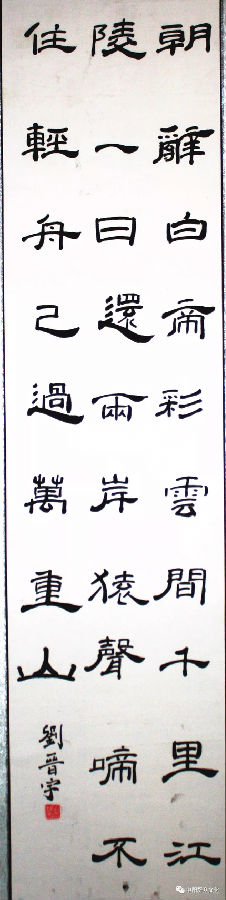 朝辭白帝彩雲間千里江
陵一日還兩岸猿聲啼不
住輕舟已過萬重山
劉晋宇